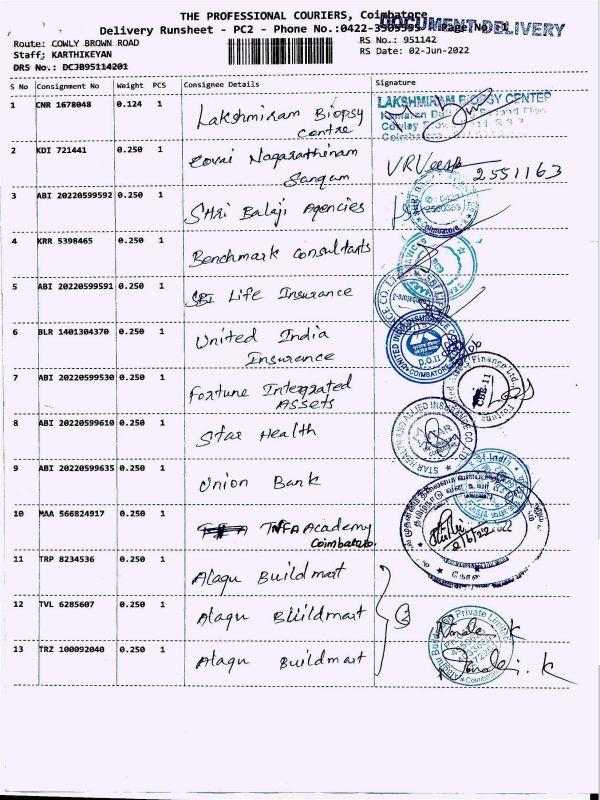 THE PROFESSIONAL COURIERS, Coimbatore
DOCUMENT DELIVERY
Delivery Runsheet - PC2 - Phone No.:0422-3505555 Page No.:1
Route: COWLY BROWN ROAD
RS No.: 951142
Staff: KARTHIKEYAN
RS Date: 02-Jun-2022
DRS No.: DCJB95114201
S No Consignment No Weight PCS Consignee Details Signature
1 CNR 1678048 0.124 1 Lakshmiram Biopsy
Centre
LAKSHMIRAM BIOPSY CENTER
2 KDI 721441 0.250 1 Kovai Nagarathinam
Sangam
2551163
3 ABI 20220599592 0.250 1 SHRi Balaji Agencies
4 KRR 5398465 0.250 1 Benchmark Consultants
5 ABI 20220599591 0.250 1 SBI Life Insurance
6 BLR 1401304370 0.250 1 United India
Insurance
UNITED INDIA INSURANCE CO
D.O.II
COIMBATORE
7 ABI 20220599530 0.250 1 Fortune Integrated
ASSETS
Finance Ltd.
CBE-11
8 ABI 20220599610 0.250 1 Star Health
STAR HEALTH AND ALLIED INSURANCE CO LTD
STAR
9 ABI 20220599635 0.250 1 Union Bank
10 MAA 566824917 0.250 1 TNFA Academy
Coimbatore.
2/6/2022
11 TRP 8234536 0.250 1 Alagu Buildmart
12 TVL 6285607 0.250 1 Alagu Buildmart
3
13 TRZ 100092040 0.250 1 Alagu Buildmart